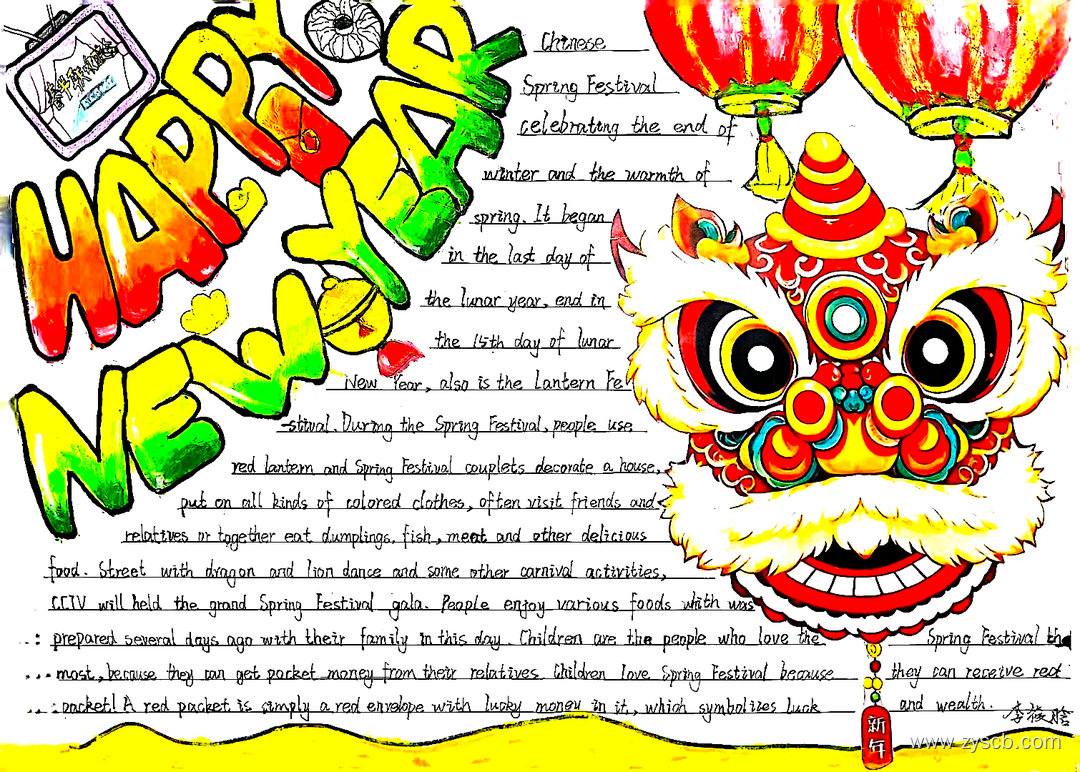 HAPPY
NEW YEAR
Chinese
Spring Festival
celebrating the end of
winter and the warmth of
spring. It began
in the last day of
the lunar year, end in
the 15th day of lunar
New Year, also is the Lantern Fe
-stival. During the Spring Festival, people use
red lantern and Spring Festival couplets decorate a house,
put on all kinds of colored clothes, often visit friends and
relatives or together eat dumplings, fish, meat and other delicious
food. Street with dragon and lion dance and some other carnival activities,
CCTV will held the grand Spring Festival gala. People enjoy various foods which was
prepared several days ago with their family in this day. Children are the people who love the Spring Festival the
most, because they can get pocket money from their relatives. Children love Spring Festival because they can receive red
packet! A red packet is simply a red envelope with lucky money in it, which symbolizes luck and wealth.
新年
www.zyscb.com